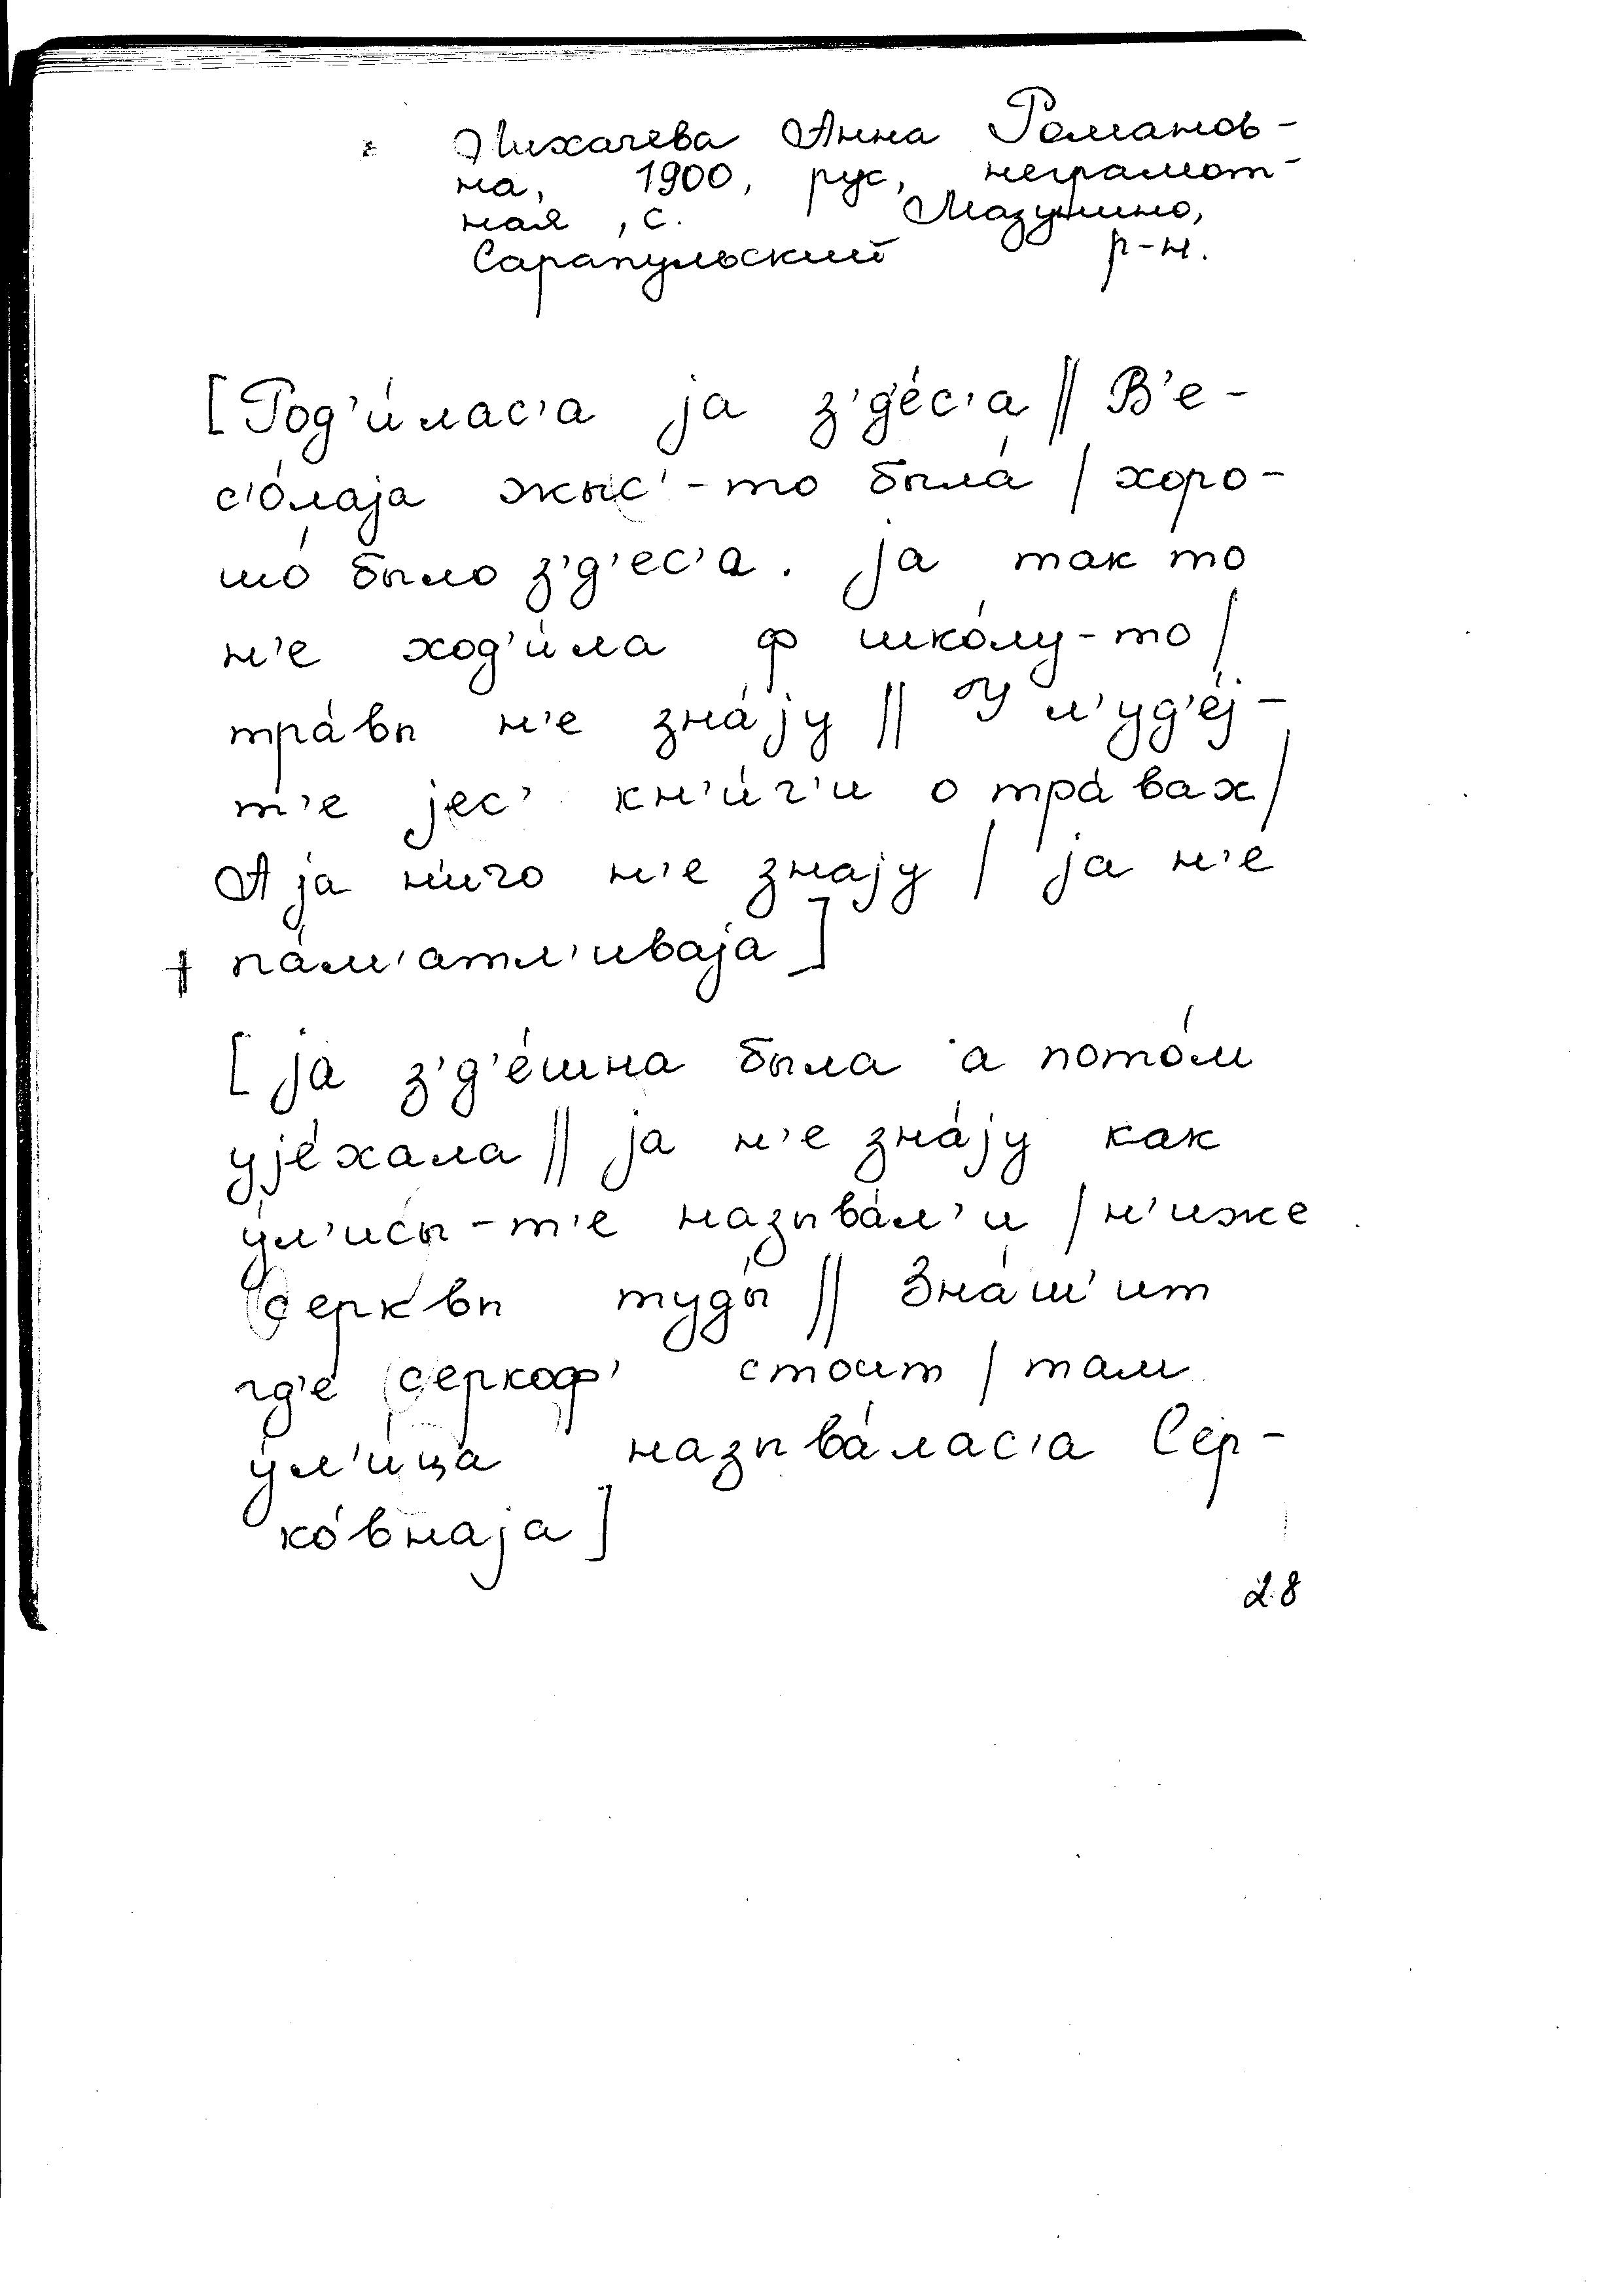 Лихачева Анна Романов-
на, 1900, рус, неграмот-
ная, с. Мазунино,
Сарапульский р-н.
[Род'и́лас'а ја з'д'е́с'а || В'е-
с'о́лаја жыс'-то была́ | хоро-
шо́ было з'д'ес'а. ја так то
н'е ход'и́ла ф шко́лу-то |
тра́вы н'е зна́ју || У л'уд'е́ј-
т'е јес' кн'и́г'и о тра́вах |
А ја нич'о н'е знају | ја н'е
па́м'атл'иваја]
[ја з'д'е́шна была а пото́м
ује́хала || ја н'е зна́ју как
у́л'исы-т'е называ́л'и | н'иже
серквы туды́ || Зна́ш'ит
гд'е серкоф' стоит | там
у́л'ица называ́лас'а Сер-
ко́внаја]
28